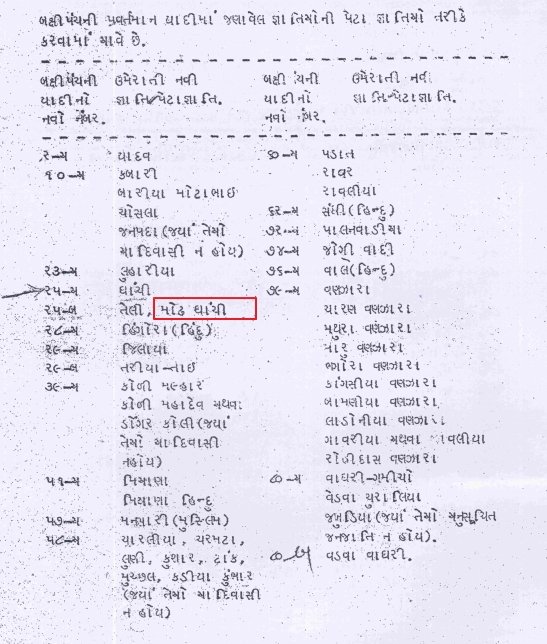 બક્ષીપંચની પ્રવર્તમાન યાદીમાં જણાવેલ જ્ઞાતિઓની પેટા જ્ઞાતિઓ તરીકે
કરવામાં આવે છે.
બક્ષીપંચની ઉમેરાતી નવી
યાદીનો જ્ઞાતિ/પેટાજ્ઞાતિ.
નવો નંબર.
૨-અ યાદવ
૧૦-અ કબારી
બારીયા મોટાભાઈ
ચોસલા
જનપદા(જયાં તેઓ
આદિવાસી ન હોય)
૨૩-અ લુહારીયા
૨૫-અ ઘાંચી
૨૫-બ તેલી, મોઢ ઘાંચી
૨૮-અ હિંગોરા(હિંદુ)
૨૯-અ જિલાયા
૨૯-બ તરીયા-તાઈ
૩૯-અ કોળી મલ્હાર
કોળી મહાદેવ અથવા
ડોંગર કોલી(જયાં
તેઓ આદિવાસી
નહોય)
૫૧-અ મિયાણા
મિયાણા હિન્દુ
૫૭-અ મન્સારી(મુસ્લિમ)
૫૮-અ ચારલીયા, ચરમટા,
લુણી, કુશાર, ટાંક,
મુચ્છલ, કડીયા કુંભાર
(જયાં તેઓ આદિવાસી
ન હોય)
બક્ષીપંચની ઉમેરાતી નવી
યાદીનો જ્ઞાતિ/પેટાજ્ઞાતિ.
નવો નંબર.
૬૦-અ પડાત
રાવર
રાવલીયા
૬૨-અ સંઘી(હિન્દુ)
૭૨-અ પાલનવાડીયા
૭૪-અ જોગી વાદી
૭૬-અ વાલે(હિન્દુ)
૭૯-અ વણઝારા
ચારણ વણઝારા
મથુરા વણઝારા
મારુ વણઝારા
બગોરા વણઝારા
કાંગસીયા વણઝારા
બામણીયા વણઝારા
લાડોનીયા વણઝારા
ગાવરીયા અથવા ગવલીયા
રોહીદાસ વણઝારા
૮૦-અ વાઘરી-ગમીચો
વેડવા ચુરાલિયા
જખુડિયા(જયાં તેઓ અનુસૂચિત
જનજાતિ ન હોય).
૮૦ બ વડવા વાઘરી.